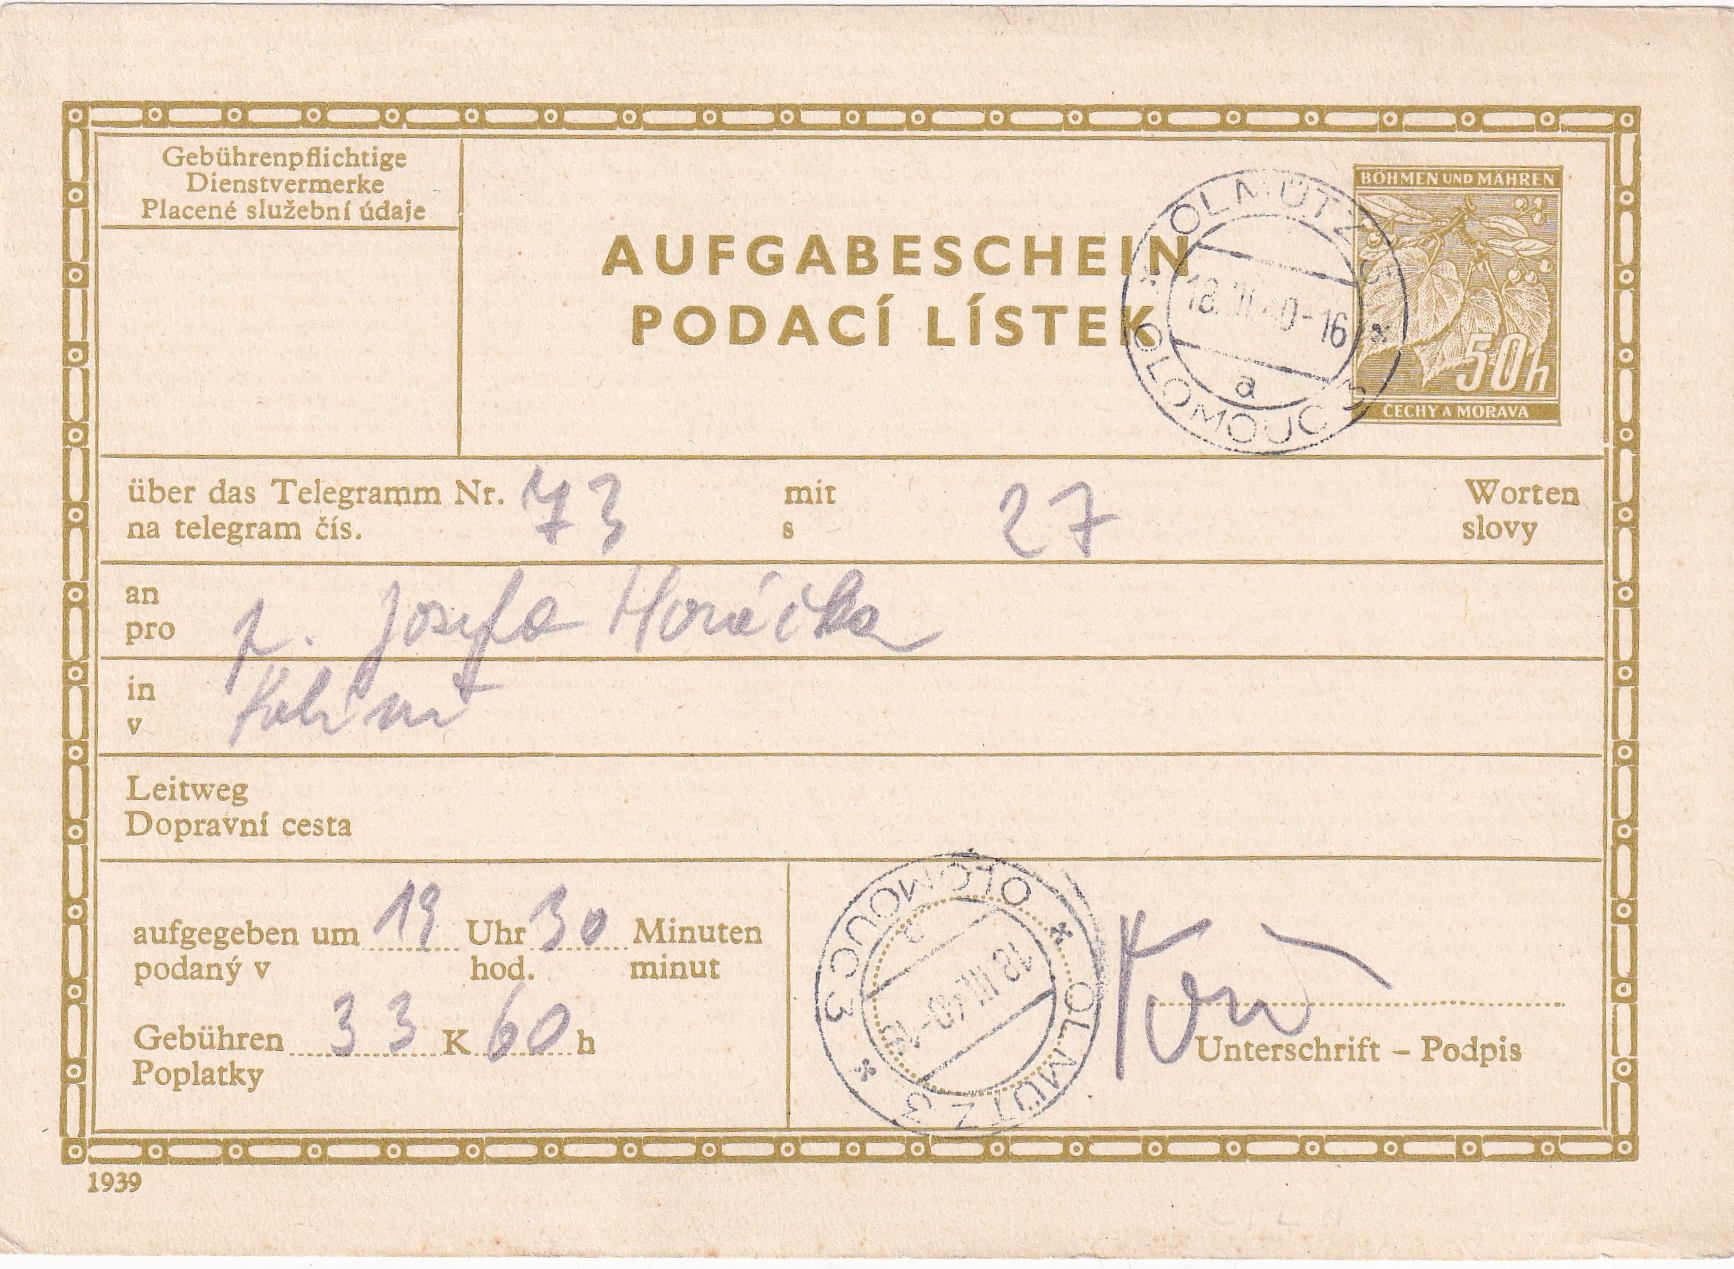 Gebührenpflichtige
Dienstvermerke
Placené služební údaje
AUFGABESCHEIN
PODACÍ LÍSTEK
OLMÜTZ 3
18.III.40-16
a
OLOMOUC 3
BÖHMEN UND MÄHREN
50h
ČECHY A MORAVA
über das Telegramm Nr. 73 mit 27 Worten
na telegram čís. s slovy
an
pro p. Josefa Horáčka
in
v
Leitweg
Dopravní cesta
aufgegeben um 19 Uhr 30 Minuten
podaný v hod. minut
Gebühren 33 K 60 h
Poplatky
OLOMOUC 3
18.III.40
OLMÜTZ 3
Unterschrift – Podpis
1939